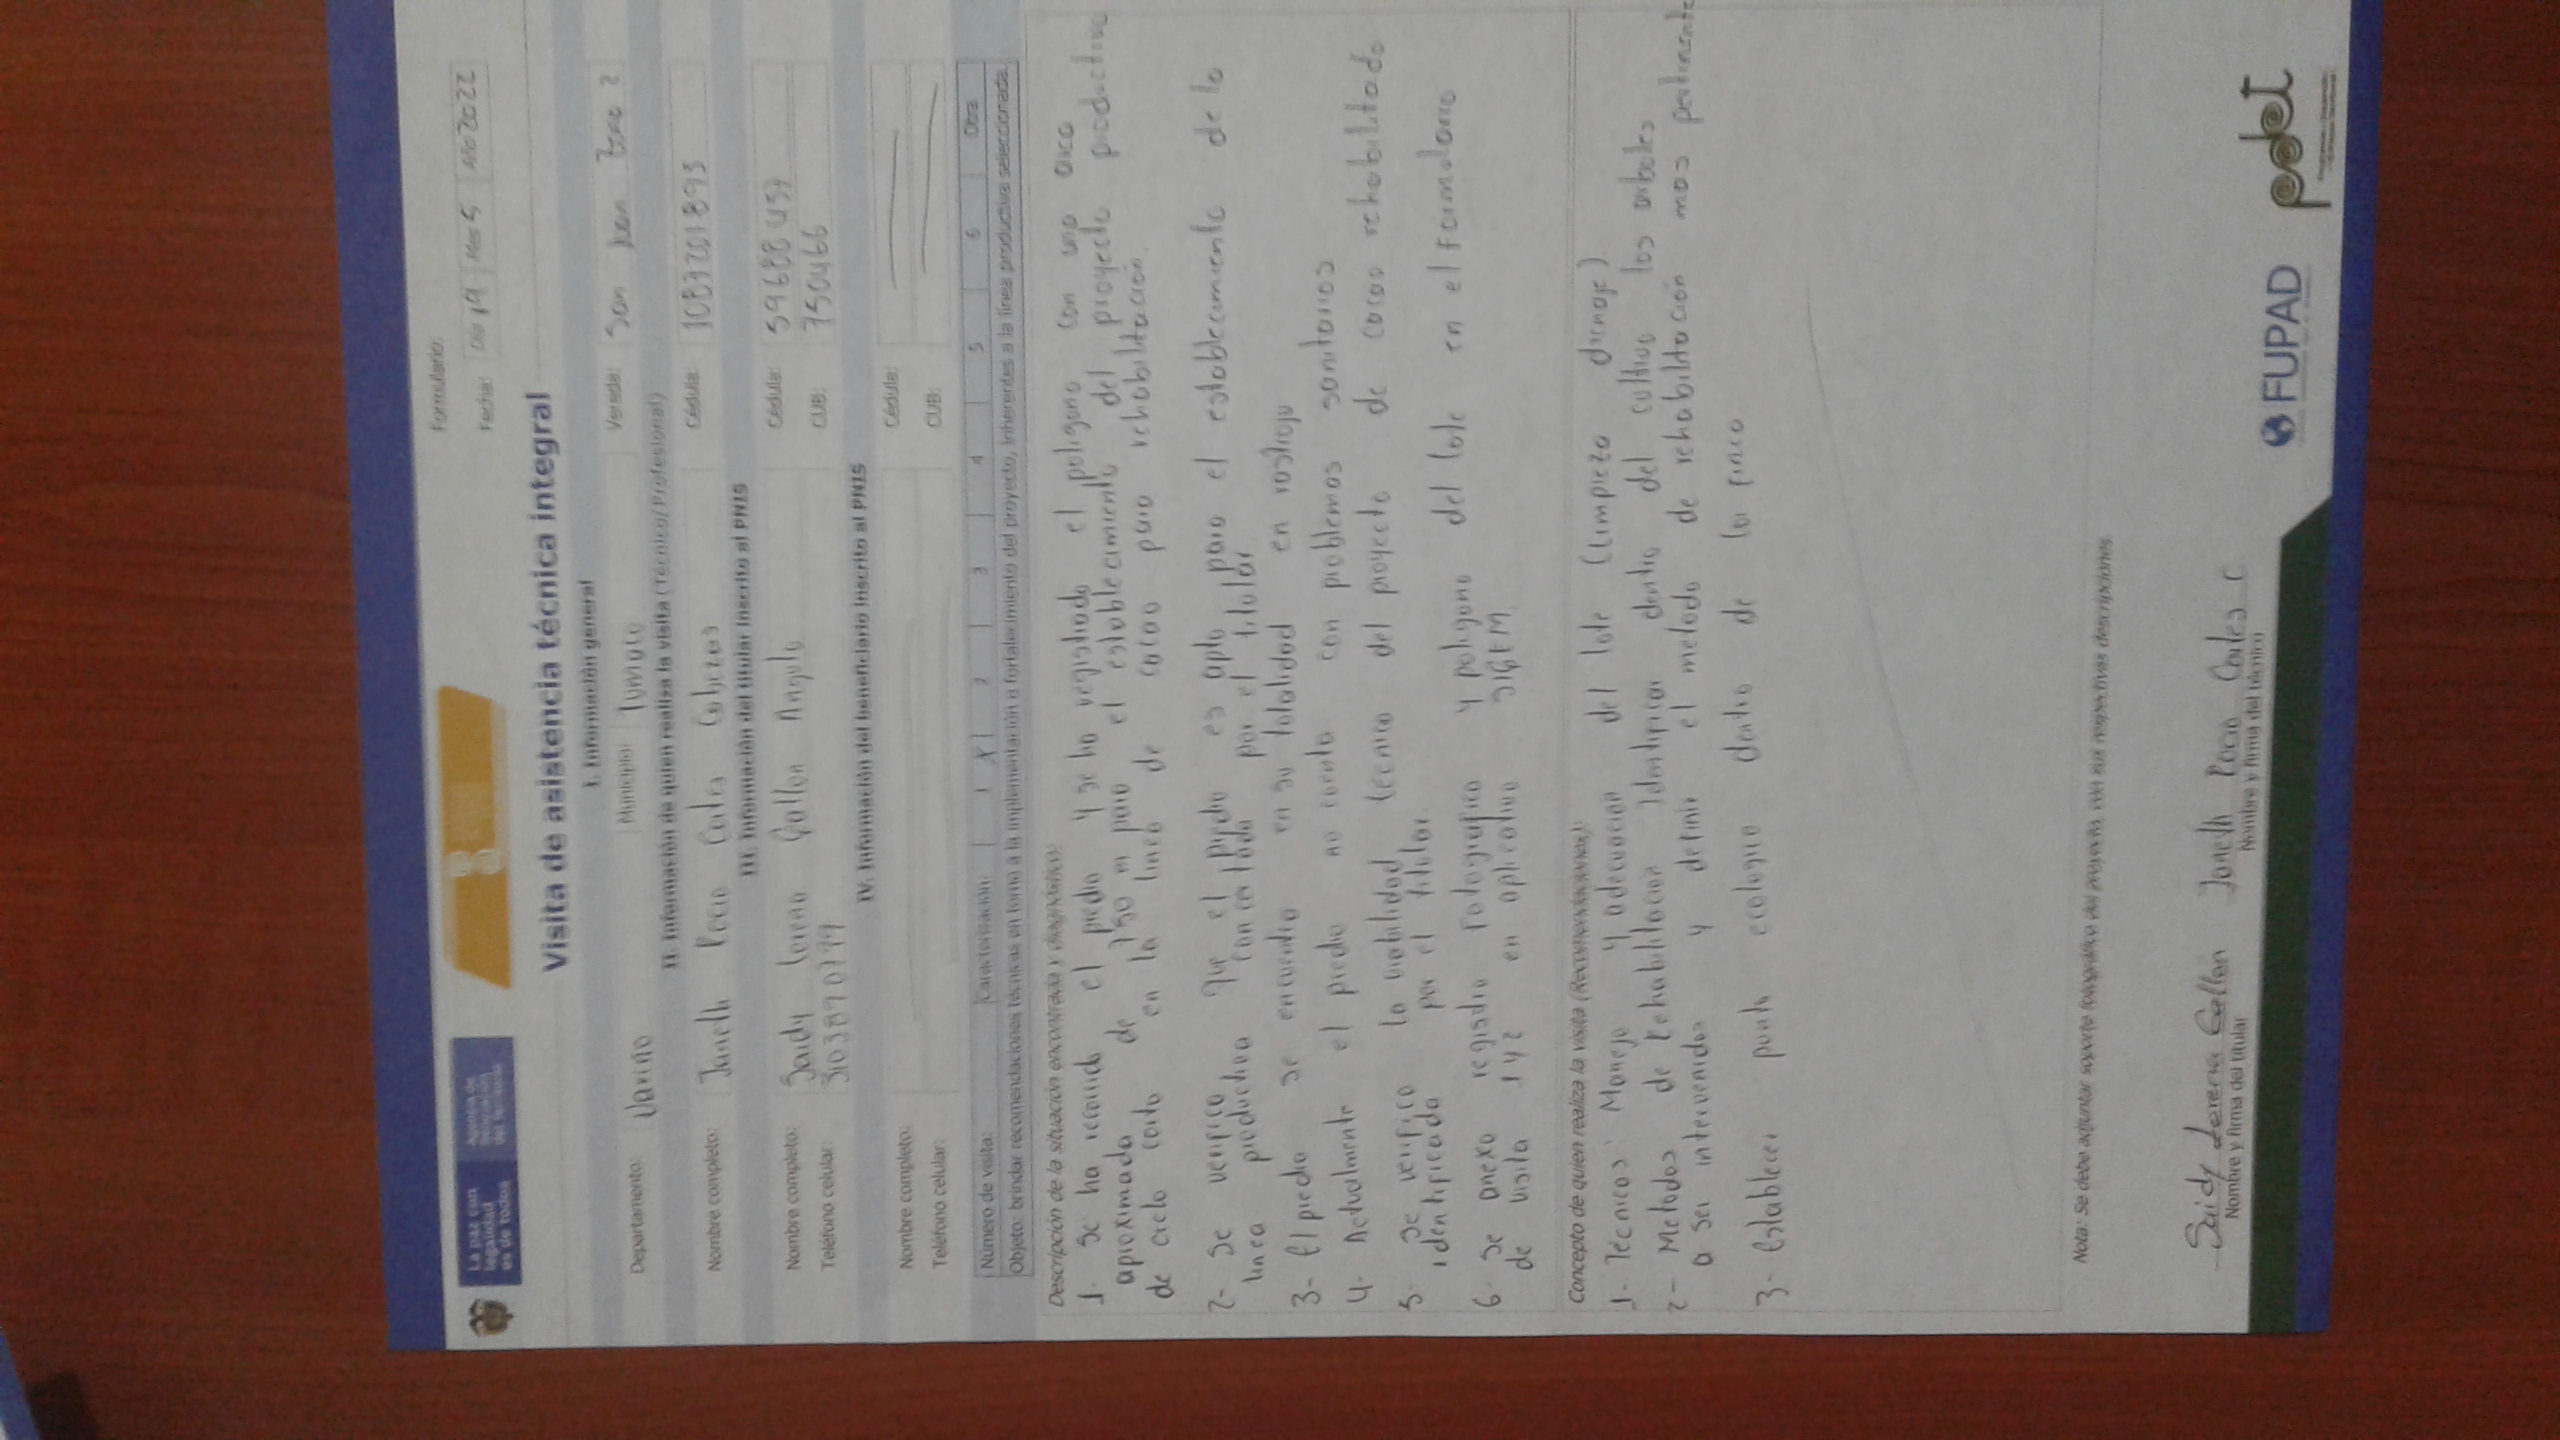 La paz con
legalidad
es de todos
Agencia de
Renovación
del Territorio
Formulario:
Fecha: Día 19 Mes 5 Año 2022
Visita de asistencia técnica integral
I. Información general
Departamento: Nariño Municipio: Tumaco Vereda: San Juan
II. Información de quien realiza la visita (Técnico/Profesional)
Nombre completo: Janeth Rocio Cortes Cabezas Cédula: 1087201893
III. Información del titular inscrito al PNIS
Nombre completo: Saidy Lorena Gallon Angulo Cédula: 59688457
Teléfono celular: 3103890799 CUB: 750466
IV. Información del beneficiario inscrito al PNIS
Nombre completo: Cédula:
Teléfono celular: CUB:
Número de visita: Caracterización: 1 X 2 3 4 5 6 Otra
Objeto: brindar recomendaciones técnicas en torno a la implementación o fortalecimiento del proyecto, inherentes a la línea productiva seleccionada.
Descripción de la situación encontrada y diagnóstico:
1- Se ha recorrido el predio y se ha registrado el poligono con una area
aproximada de 7850 m para el establecimiento del proyecto productivo
de ciclo corto en la linea de cacao para rehabilitación.
2- Se verifico que el predio es apto para el establecimiento de la
linea productiva concertada por el titular.
3- El predio se encuentra en su totalidad en rastrojo
4- Actualmente el predio no cuenta con problemas sanitarios
5- se verifico la viabilidad tecnica del proyecto de cacao rehabilitado
identificada por el titular
6- se anexa registro fotografico y poligono del lote en el formulario
de visita 1 y 2 en aplicativo SIGEM
Concepto de quien realiza la visita (Recomendaciones):
1- Tecnicas: Manejo y adecuacion del lote (limpieza drenaje)
2- Metodos de Rehabilitacion Identificar dentro del cultivo los arboles
a ser intervenidos y definir el metodo de rehabilitación mas pertinente
3- Establecer punto ecologico dentro de la finca
Nota: Se debe adjuntar soporte fotográfico del proyecto, con sus respectivas descripciones.
Saidy Lorena Gallon Janeth Rocio Cortes C
Nombre y firma del titular Nombre y firma del técnico
FUPAD pdet